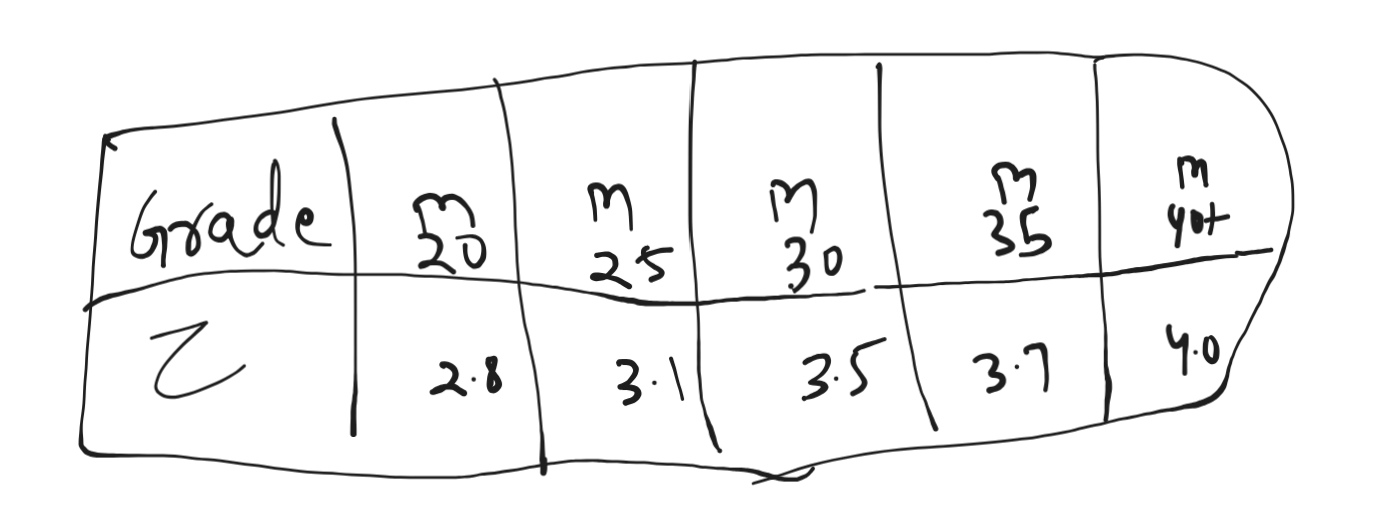 Grade M 20 M 25 M 30 M 35 M 40+
τ 2.8 3.1 3.5 3.7 4.0